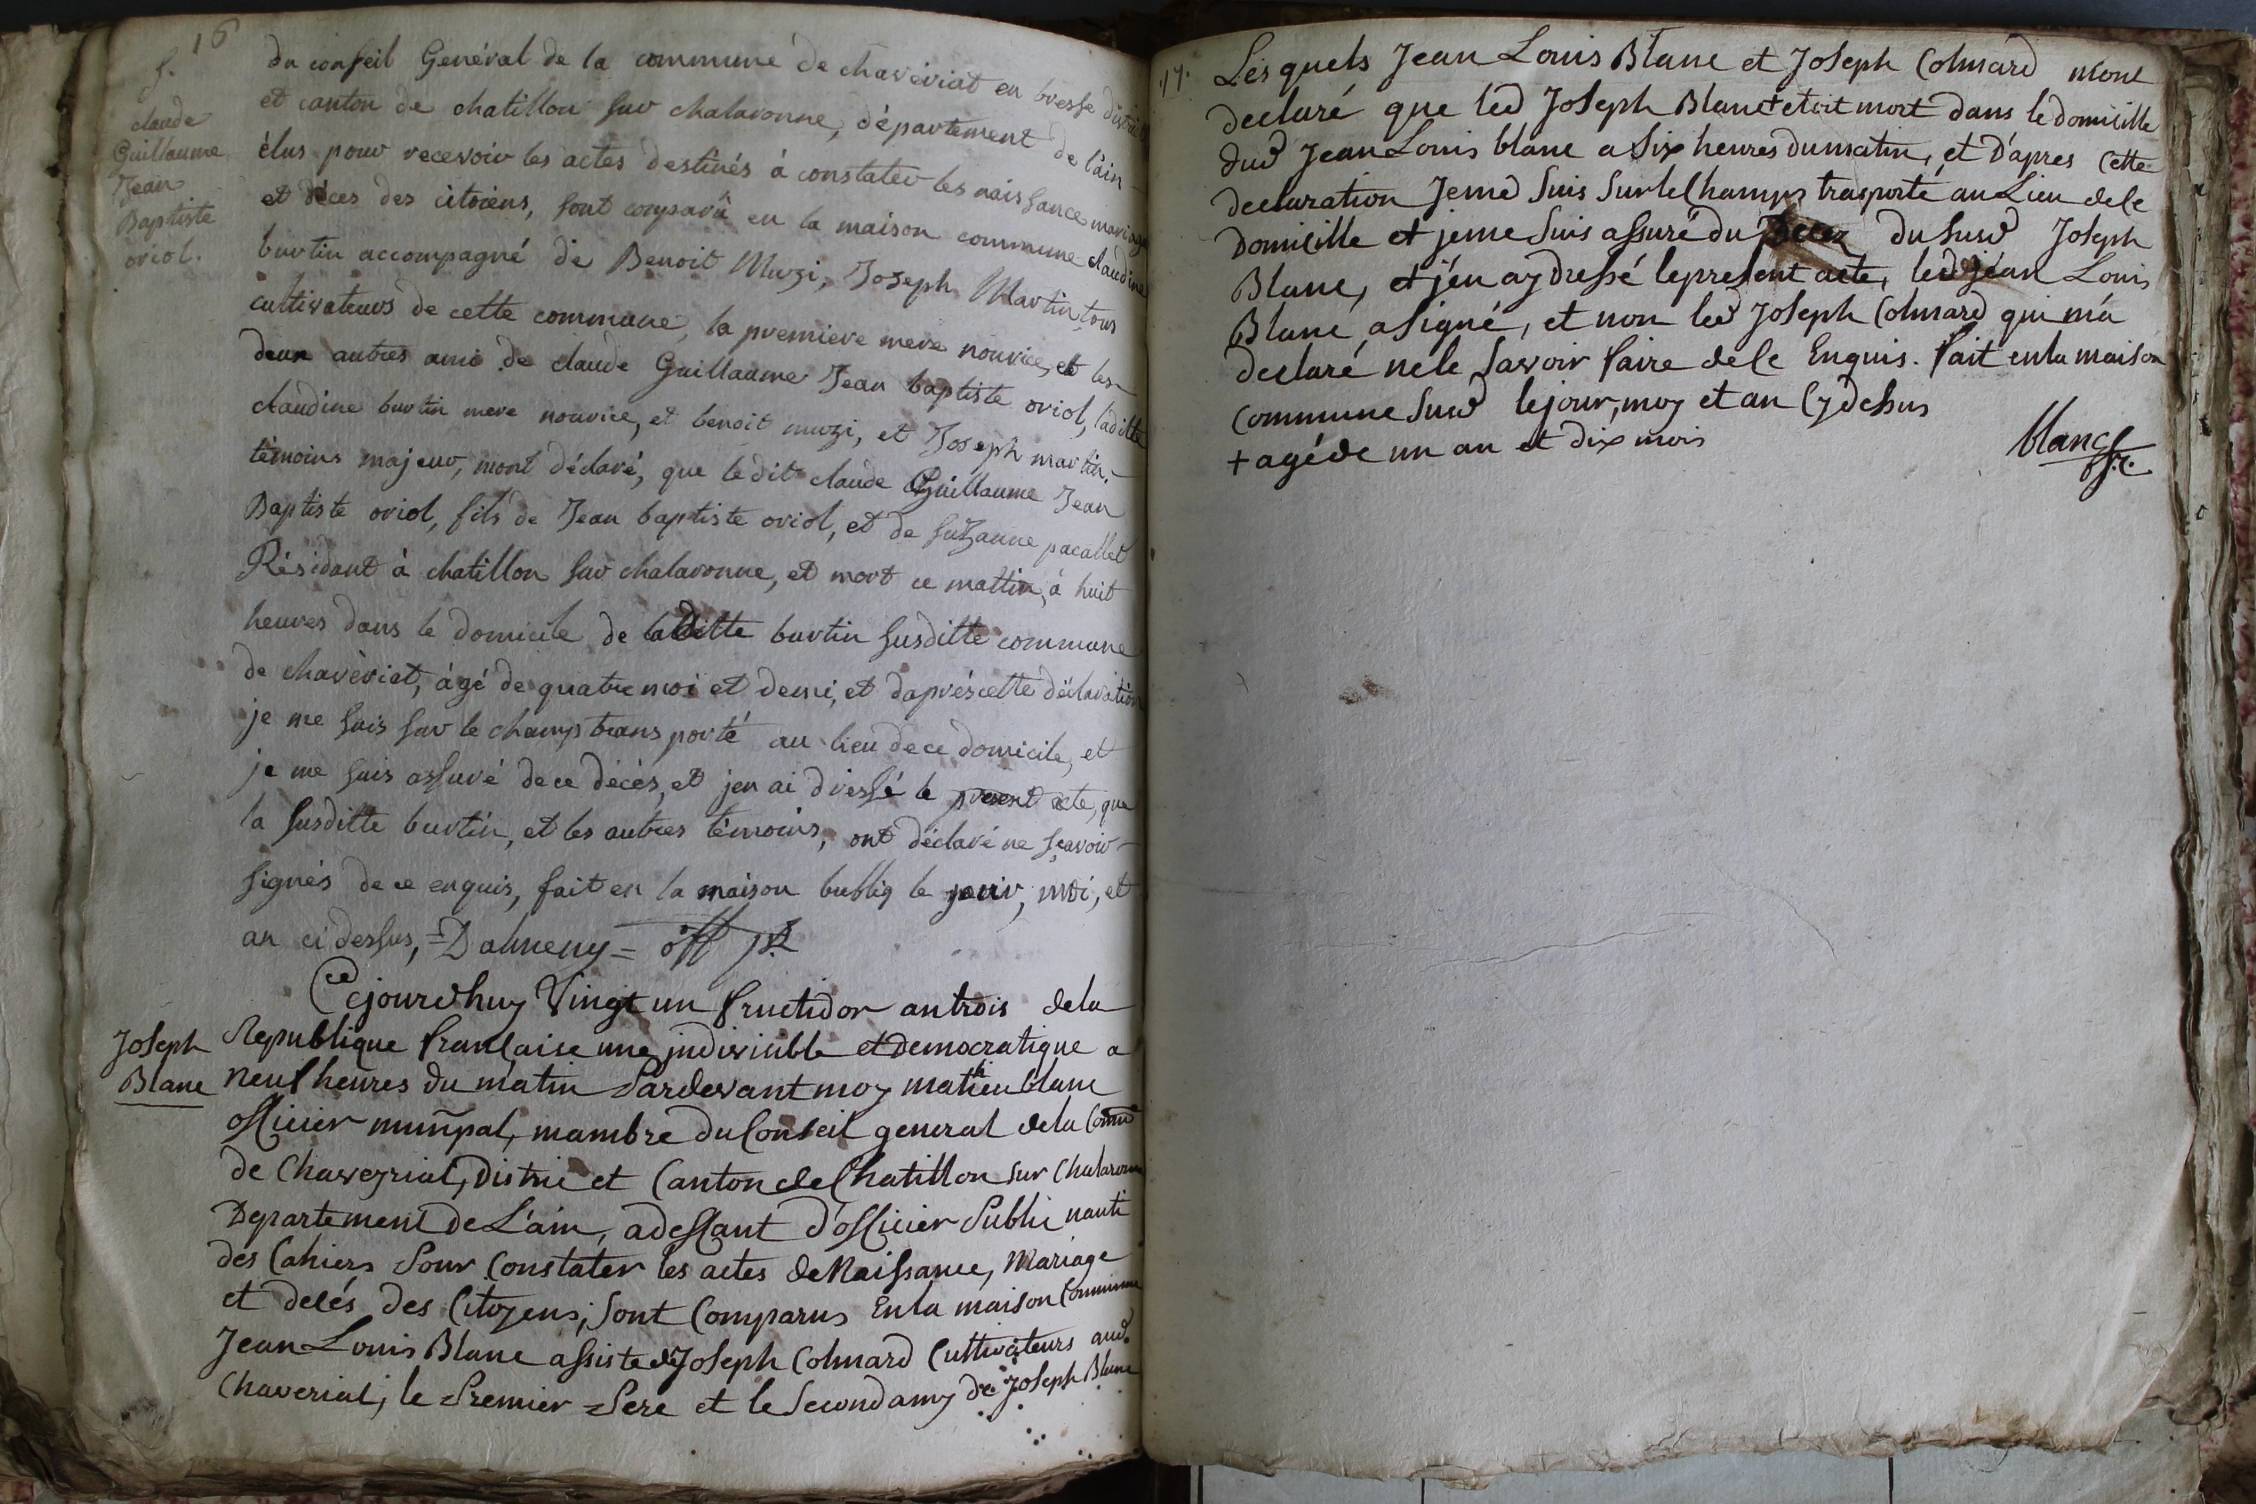 16
f.
claude
Guillaume
Jean
Baptiste
oriol.
du conseil Genéral de la commune de chavériat en bresse district
et canton de chatillon sur chalaronne, département de l'ain
élus pour recevoir les actes destinés à constater les naissance mariage
et déces des citoiens, sont comparû en la maison commune claudine
burtin accompagné de Benoit Muzi, Joseph Martin, tous
cultivateurs de cette commune, la premiere mere nourice, et les
deux autres ami de claude Guillaume Jean baptiste oriol, laditte
claudine burtin mere nourice, et benoit muzi, et Joseph martin,
témoins majeur, mont déclaré, que ledit claude Guillaume Jean
Baptiste oriol, fils de Jean baptiste oriol, et de suzanne pacallet
Résidant à chatillon sur chalaronne, et mort ce mattin, à huit
heures dans le domicile de laditte burtin susditte commune
de chavèriat, àgé de quatre moi et demi, et daprès cette déclaration
je me suis sur le champs transporté au lieu de ce domicile, et
je me suis assuré de ce décès, et jen ai dressé le present acte, que
la susditte burtin, et les autres témoins, ont déclaré ne sçavoir
signés de ce enquis, fait en la maison bubliq le jour, moi, et
an ci dessus, = Dalmeny = off p.
Ce cejourdhuy Vingt un fructidor an trois dela
Joseph
Blanc
Republique francaise une indivisible et democratique a
neuf heures du matin Pardevant moy mathieu blanc
officier munpal, mambre du Conseil general dela Comne
de Chaveyriat, Distric et Canton de Chatillon sur Chalaronne
Departement de L'ain, adeffant d'officier Public nanti
des Cahiers Pour Constater les actes de Naissance, Mariage
et decés des Citoyens; sont Comparus En la maison Commune
Jean Louis Blanc assisté de Joseph Colmard Cultivateurs aud.
Chaveriat, le Premier Pere et le Second amy de Joseph Blanc
17.
Les quels Jean Louis Blanc et Joseph Colmard mont
declaré que led Joseph Blanc + etoit mort dans le domicille
dud Jean Louis blanc a Six heures du matin, et D'apres Cette
declaration Jeme Suis Sur le Champs trasporté au Lieu de Ce
Domicille et jeme Suis assuré du Decez du susd Joseph
Blanc, et j'en ay dressé le present acte, led Jean Louis
Blanc a Signé, et non led Joseph Colmard qui m'a
declaré ne le Savoir faire de Ce Enquis. fait en la maison
Commune Susd le jour, moy et an Cy dessus
+ agé de un an et dix mois
blanc